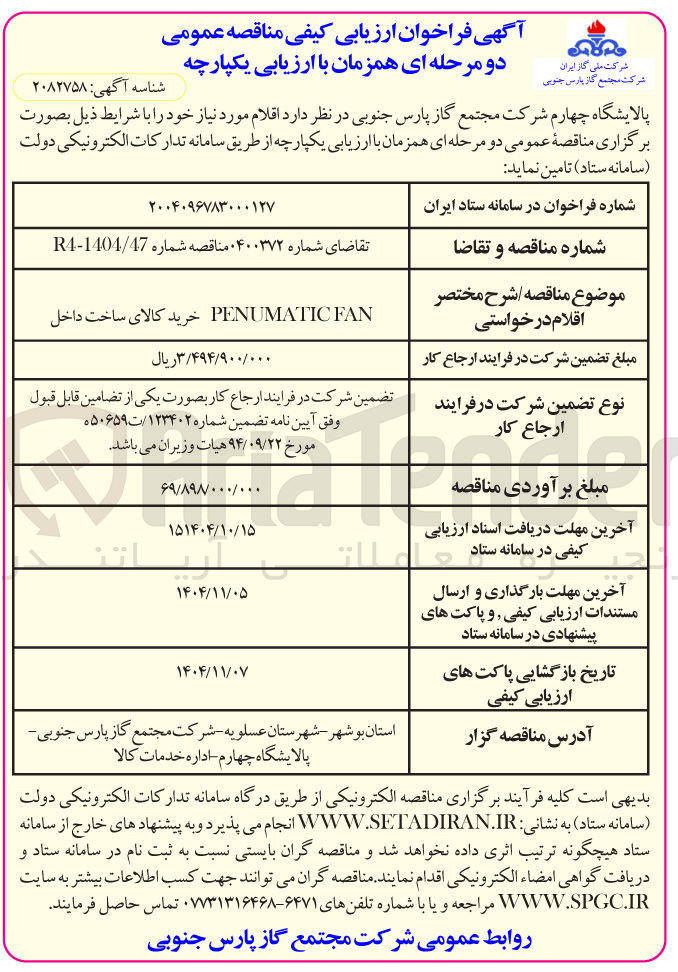 آگهی فراخوان ارزیابی کیفی مناقصه عمومی
دو مرحله ای همزمان با ارزیابی یکپارچه
شرکت ملی گاز ایران
شرکت مجتمع گاز پارس جنوبی
شناسه آگهی: ۲۰۸۲۷۵۸
پالایشگاه چهارم شرکت مجتمع گاز پارس جنوبی در نظر دارد اقلام مورد نیاز خود را با شرایط ذیل بصورت
برگزاری مناقصهٔ عمومی دو مرحله ای همزمان با ارزیابی یکپارچه از طریق سامانه تدارکات الکترونیکی دولت
(سامانه ستاد) تامین نماید:
شماره فراخوان در سامانه ستاد ایران
۲۰۰۴۰۹۶۷۸۳۰۰۰۱۲۷
شماره مناقصه و تقاضا
تقاضای شماره ۰۴۰۰۳۷۲مناقصه شماره R4-1404/47
موضوع مناقصه/شرح مختصر
اقلام درخواستی
PENUMATIC FAN خرید کالای ساخت داخل
مبلغ تضمین شرکت در فرایند ارجاع کار
۳/۴۹۴/۹۰۰/۰۰۰ریال
نوع تضمین شرکت در فرایند
ارجاع کار
تضمین شرکت در فرایند ارجاع کار بصورت یکی از تضامین قابل قبول
وفق آیین نامه تضمین شماره ۱۲۳۴۰۲/ت۵۰۶۵۹ه
مورخ ۹۴/۰۹/۲۲ هیات وزیران می باشد.
مبلغ برآوردی مناقصه
۶۹/۸۹۸/۰۰۰/۰۰۰
آخرین مهلت دریافت اسناد ارزیابی
کیفی در سامانه ستاد
۱۵۱۴۰۴/۱۰/۱۵
آخرین مهلت بارگذاری و ارسال
مستندات ارزیابی کیفی , و پاکت های
پیشنهادی در سامانه ستاد
۱۴۰۴/۱۱/۰۵
تاریخ بازگشایی پاکت های
ارزیابی کیفی
۱۴۰۴/۱۱/۰۷
آدرس مناقصه گزار
استان بوشهر-شهرستان عسلویه-شرکت مجتمع گاز پارس جنوبی-
پالایشگاه چهارم-اداره خدمات کالا
بدیهی است کلیه فرآیند برگزاری مناقصه الکترونیکی از طریق درگاه سامانه تدارکات الکترونیکی دولت
(سامانه ستاد) به نشانی: WWW.SETADIRAN.IR انجام می پذیرد وبه پیشنهاد های خارج از سامانه
ستاد هیچگونه ترتیب اثری داده نخواهد شد و مناقصه گران بایستی نسبت به ثبت نام در سامانه ستاد و
دریافت گواهی امضاء الکترونیکی اقدام نمایند.مناقصه گران می توانند جهت کسب اطلاعات بیشتر به سایت
WWW.SPGC.IR مراجعه و یا با شماره تلفن های ۶۴۷۱-۰۷۷۳۱۳۱۶۴۶۸ تماس حاصل فرمایند.
روابط عمومی شرکت مجتمع گاز پارس جنوبی
AriaTender